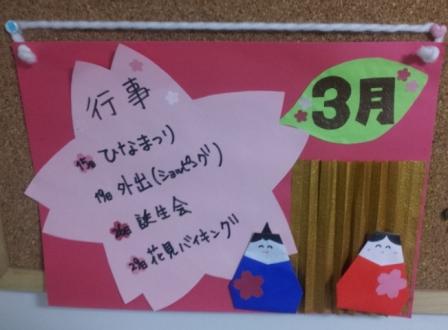 3月
行事
15日 ひなまつり
19日 外出(ショッピング)
26日 誕生会
29日 花見バイキング